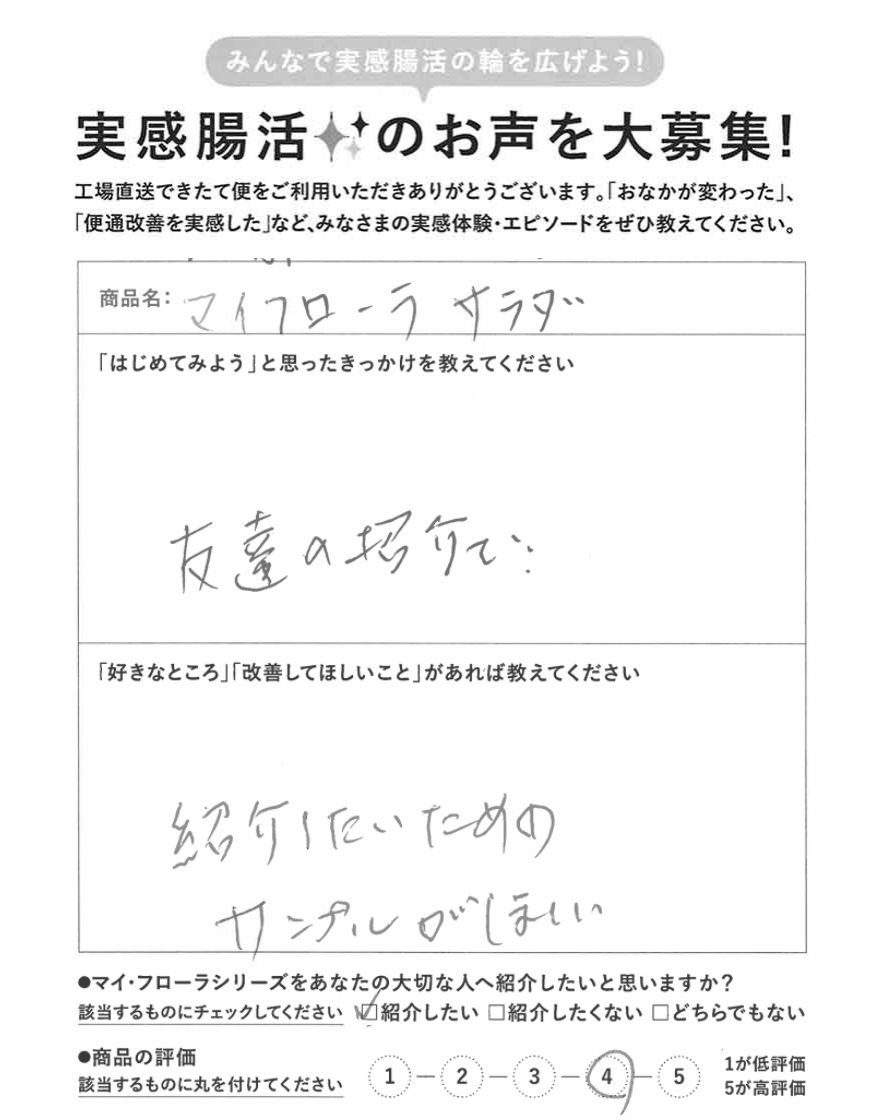 みんなで実感腸活の輪を広げよう!
実感腸活のお声を大募集!
工場直送できたて便をご利用いただきありがとうございます。「おなかが変わった」、
「便通改善を実感した」など、みなさまの実感体験・エピソードをぜひ教えてください。
商品名: マイフローラ サラダ
「はじめてみよう」と思ったきっかけを教えてください
友達の紹介で
「好きなところ」「改善してほしいこと」があれば教えてください
紹介したいための
サンプルがほしい
●マイ・フローラシリーズをあなたの大切な人へ紹介したいと思いますか?
該当するものにチェックしてください ☑紹介したい □紹介したくない □どちらでもない
●商品の評価
該当するものに丸を付けてください
1 2 3 4 5
1が低評価
5が高評価